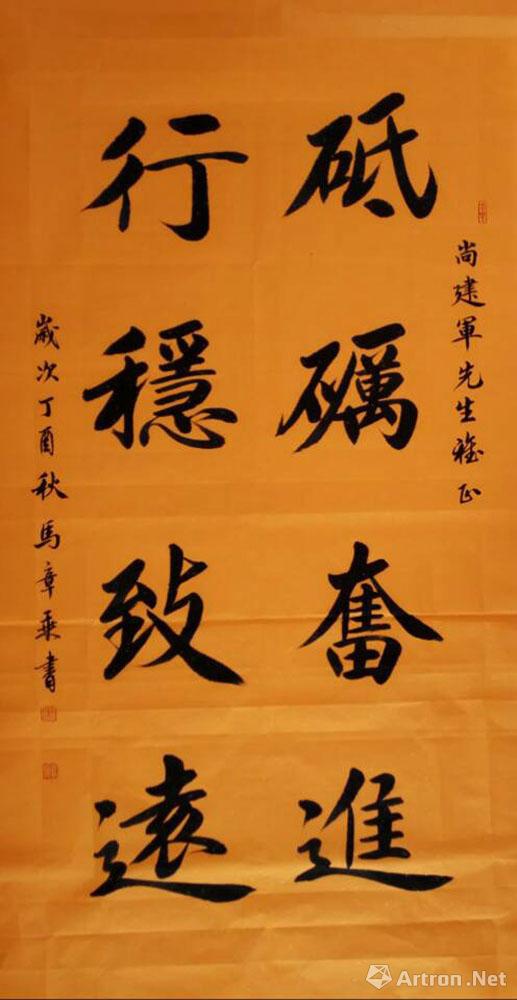 尚建軍先生雅正
砥礪奮進
行穩致遠
歲次丁酉秋馬章乘書
Artron.Net